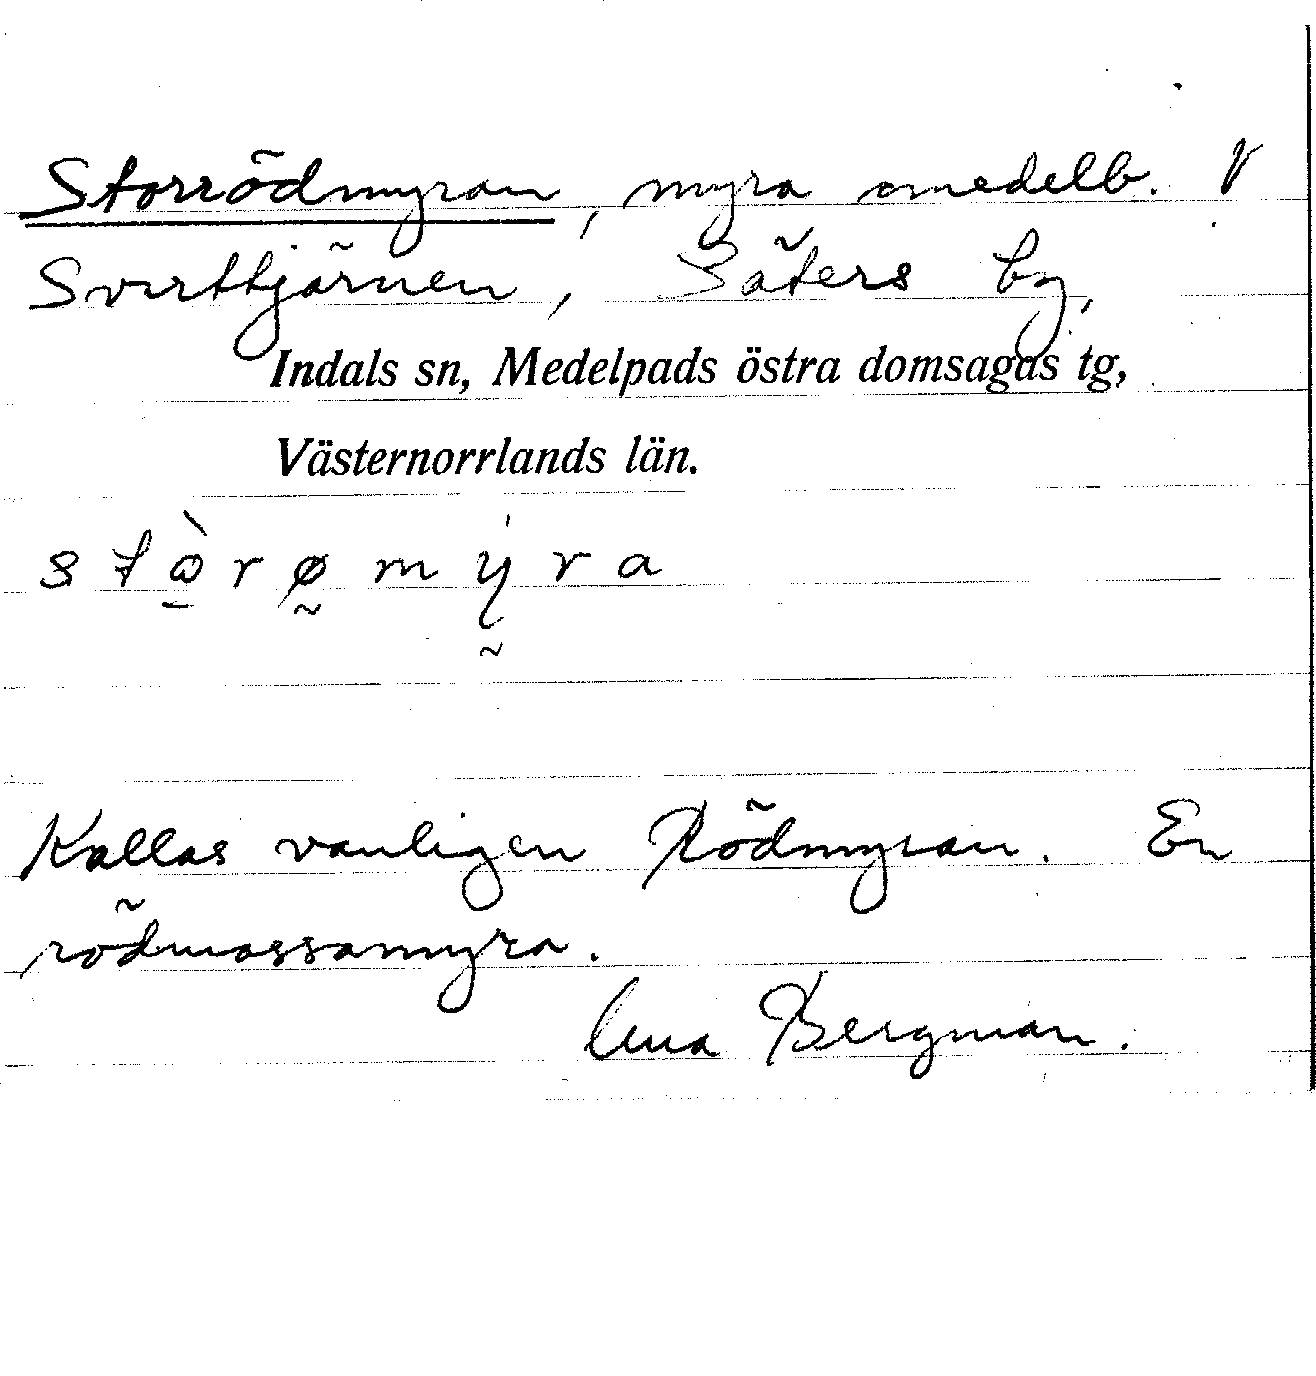 Storrödmyran, myra omedelb. V
Svirttjärnen, Säters by,
Indals sn, Medelpads östra domsagas tg,
Västernorrlands län.
Kallas vanligen Rödmyran. En
rödmossamyra.
Bergman.